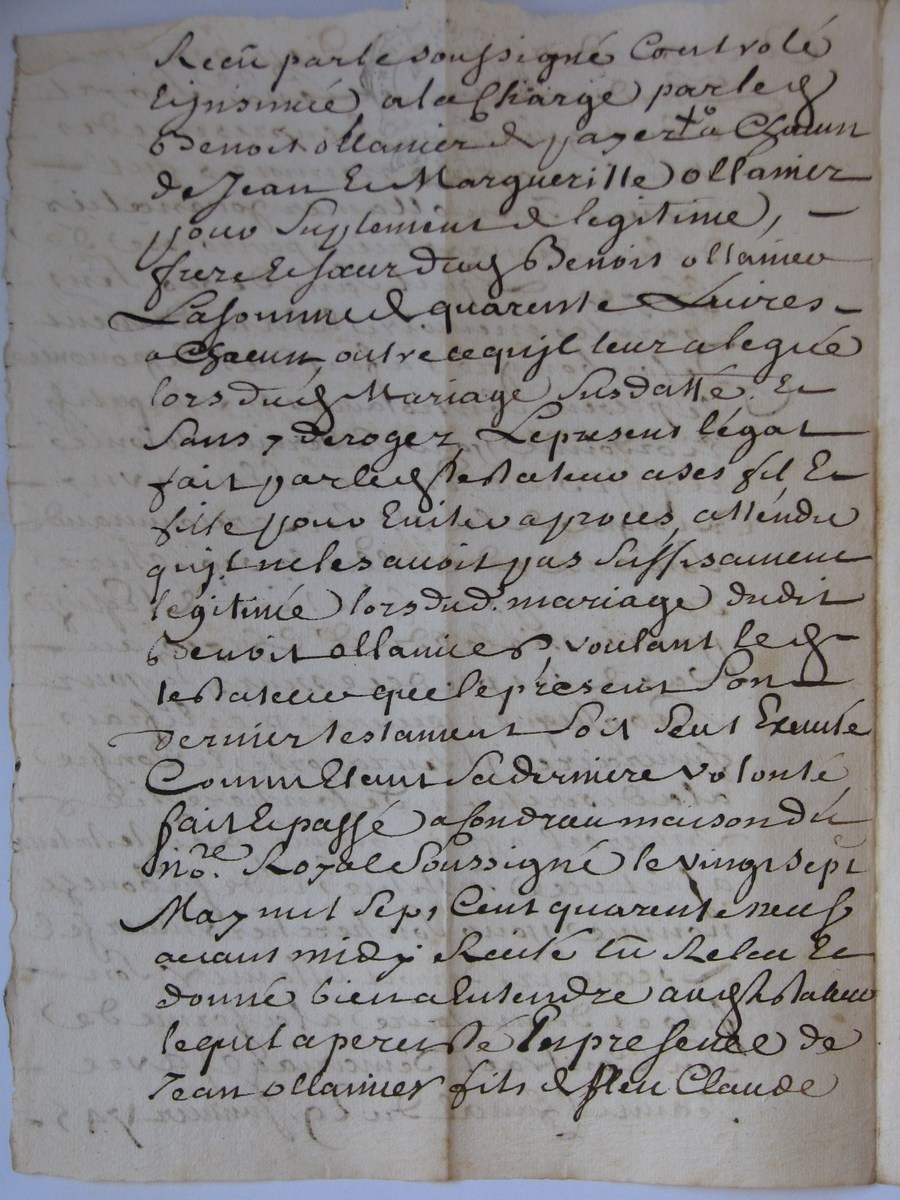 Receu par le soussigné Controlé
Et insinué a la Charge par led
Benoit ollanier de payer a Chacun
de Jean Et Margueritte ollanier
pour suplement de legitime,
frere Et sœur dud Benoit ollanier
La somme de quarente Livres
a Chacun, outre ce quil leur a legué
lors dud Mariage susdatté Et
sans y deroger, Le present légat
fait par led testateur a ses fil Et
fille pour Eviter a proces, attendu
quil ne les avoit pas suffisament
legitimé lors dud. mariage dudit
Benoit ollanier voulant led
testateur que le présent son
dernier testament soit seul Executé
Comme Etant sa derniere volonté
fait Et passé a fondrau maison du
no.re Royal soussigné le vingt sept
May mil sept Cent quarente neuf
avant midy Recité lu Releu Et
donné bien a Entendre aud testateur
lequel a percisté En presence de
Jean ollanier fils de feu Claude